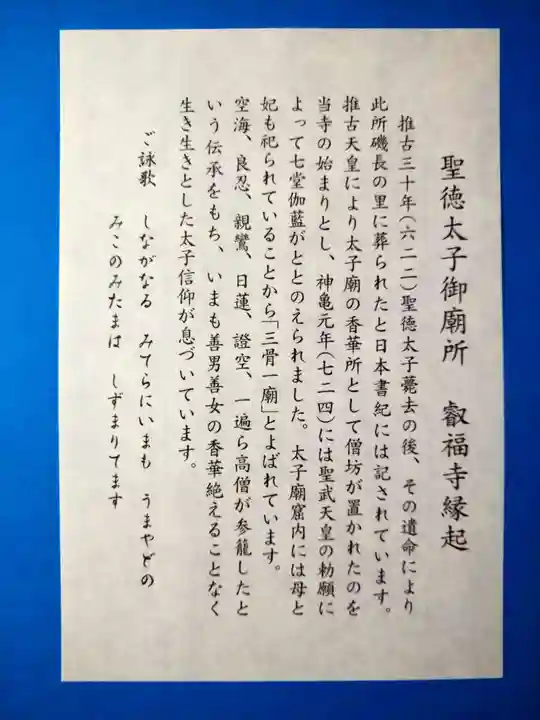 聖徳太子御廟所　叡福寺縁起
推古三十年（六二二）聖徳太子薨去の後、その遺命により
此所磯長の里に葬られたと日本書紀には記されています。
推古天皇により太子廟の香華所として僧坊が置かれたのを
当寺の始まりとし、神亀元年（七二四）には聖武天皇の勅願に
よって七堂伽藍がととのえられました。太子廟窟内には母と
妃も祀られていることから「三骨一廟」とよばれています。
空海、良忍、親鸞、日蓮、證空、一遍ら高僧が参籠したと
いう伝承をもち、いまも善男善女の香華絶えることなく
生き生きとした太子信仰が息づいています。
ご詠歌　しながなる　みてらにいまも　うまやどの
みこのみたまは　しずまりてます